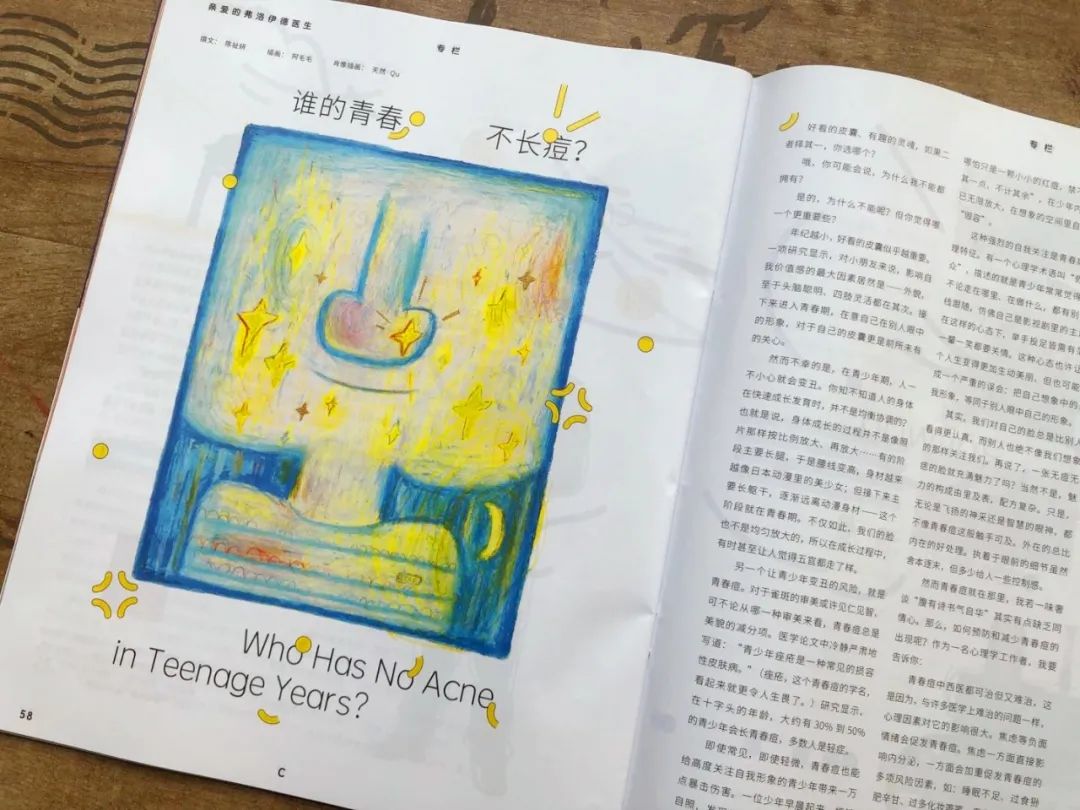 亲爱的弗洛伊德医生
专栏
撰文： 陈祉妍 插画： 阿毛毛 肖像插画： 天然 Qu
谁的青春
不长痘？
Who Has No Acne
in Teenage Years?
58
C
好看的皮囊、有趣的灵魂，如果二
者择其一，你选哪个？
哦，你可能会说，为什么我不能都
拥有？
是的，为什么不能呢？但你觉得哪
一个更重要些？
年纪越小，好看的皮囊似乎越重要。
一项研究显示，对小朋友来说，影响自
我价值感的最大因素居然是——外貌，
至于头脑聪明、四肢灵活都在其次。接
下来进入青春期，在意自己在别人眼中
的形象，对于自己的皮囊更是前所未有
的关心。
然而不幸的是，在青少年期，人一
不小心就会变丑。你知不知道人的身体
在快速成长发育时，并不是均衡协调的？
也就是说，身体成长的过程并不是像照
片那样按比例放大、再放大……有的阶
段主要长腿，于是腰线变高，身材越来
越像日本动漫里的美少女；但接下来主
要长躯干，逐渐远离动漫身材——这个
阶段就在青春期。不仅如此，我们的脸
也不是均匀放大的，所以在成长过程中，
有时甚至让人觉得五官都走了样。
另一个让青少年变丑的风险，就是
青春痘。对于雀斑的审美或许见仁见智，
可不论从哪一种审美来看，青春痘总是
美貌的减分项。医学论文中冷静严肃地
写道：“青少年痤疮是一种常见的损容
性皮肤病。”（痤疮，这个青春痘的学名，
看起来就更令人生畏了。）研究显示，
在十字头的年龄，大约有 30% 到 50%
的青少年会长青春痘，多数人是轻症。
即使常见，即使轻微，青春痘也能
给高度关注自我形象的青少年带来一万
点暴击伤害。一位少年早晨起来，
专栏
哪怕只是一颗小小的红痘，禁不
其一点，不计其余”，在少年内
已无限放大，在想象的空间里自
“毁容”。
这种强烈的自我关注是青春期
理特征。有一个心理学术语叫“
众”，描述的就是青少年常常觉得
不论走在哪里、在做什么，都有别
线跟随，仿佛自己是影视剧里的主
在这样的心态下，举手投足皆需有
一颦一笑都要关情。这种心态也许让
个人生变得更加生动美丽，但也可能
成一个严重的误会：把自己想象中的
我形象，等同于别人眼中自己的形象。
其实，我们对自己的脸总是比别人
看得更认真，而别人也绝不像我们想象
的那样关注我们。再说了，一张无痘无
痕的脸就充满魅力了吗？当然不是，魅
力的构成由里及表，配方复杂。只是，
无论是飞扬的神采还是智慧的眼神，都
不像青春痘这般触手可及。外在的总比
内在的好处理。执着于眼前的细节虽然
舍本逐末，但多少给人一些控制感。
然而青春痘就在那里，我若一味奢
谈“腹有诗书气自华”其实有点缺乏同
情心。那么，如何预防和减少青春痘的
出现呢？作为一名心理学工作者，我要
告诉你：
青春痘中西医都可治但又难治，这
是因为，与许多医学上难治的问题一样，
心理因素对它的影响很大。焦虑等负面
情绪会促发青春痘。焦虑一方面直接影
响内分泌，一方面会加重促发青春痘的
多项风险因素，如：睡眠不足、过食甜